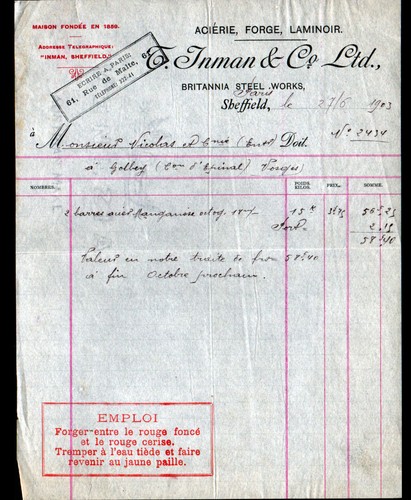 MAISON FONDÉE EN 1859.
ADDRESSE TELEGRAPHIQUE:
"INMAN, SHEFFIELD."
ECRIRE A PARIS:
61, Rue de Malte, 61
ACIÉRIE, FORGE, LAMINOIR.
T. Inman & Co. Ltd.,
BRITANNIA STEEL WORKS,
Paris
Sheffield, le 27/6 1903
No 2434
à Monsieur Nicolas Doit.
à Golbey (Con d'Epinal) Vosges
NOMBRES. POIDS KILOS. PRIX. SOMME.
2 barres acier Manganèse octog. 15 K 56.25
Port. 2.15
58.40
Valeur en notre traite de frcs 58.40
à fin Octobre prochain.
EMPLOI
Forger-entre le rouge foncé
et le rouge cerise.
Tremper à l'eau tiède et faire
revenir au jaune paille.